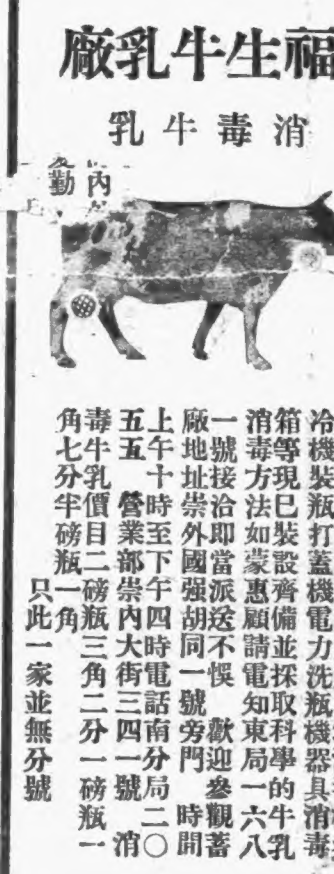 福生牛乳廠
消毒牛乳
內
勤
冷機裝瓶打蓋機電力洗瓶機器具消毒
箱等現已裝設齊備並採取科學的牛乳
消毒方法如蒙惠顧請電知東局一六八
一號接洽即當派送不悞 歡迎參觀蓄
廠地址崇外國强胡同一號旁門 時開
上午十時至下午四時電話南分局二〇
五五 營業部崇內大街三四一號 消
毒牛乳價目二磅瓶三角二分一磅瓶一
角七分半磅瓶一角
只此一家並無分號